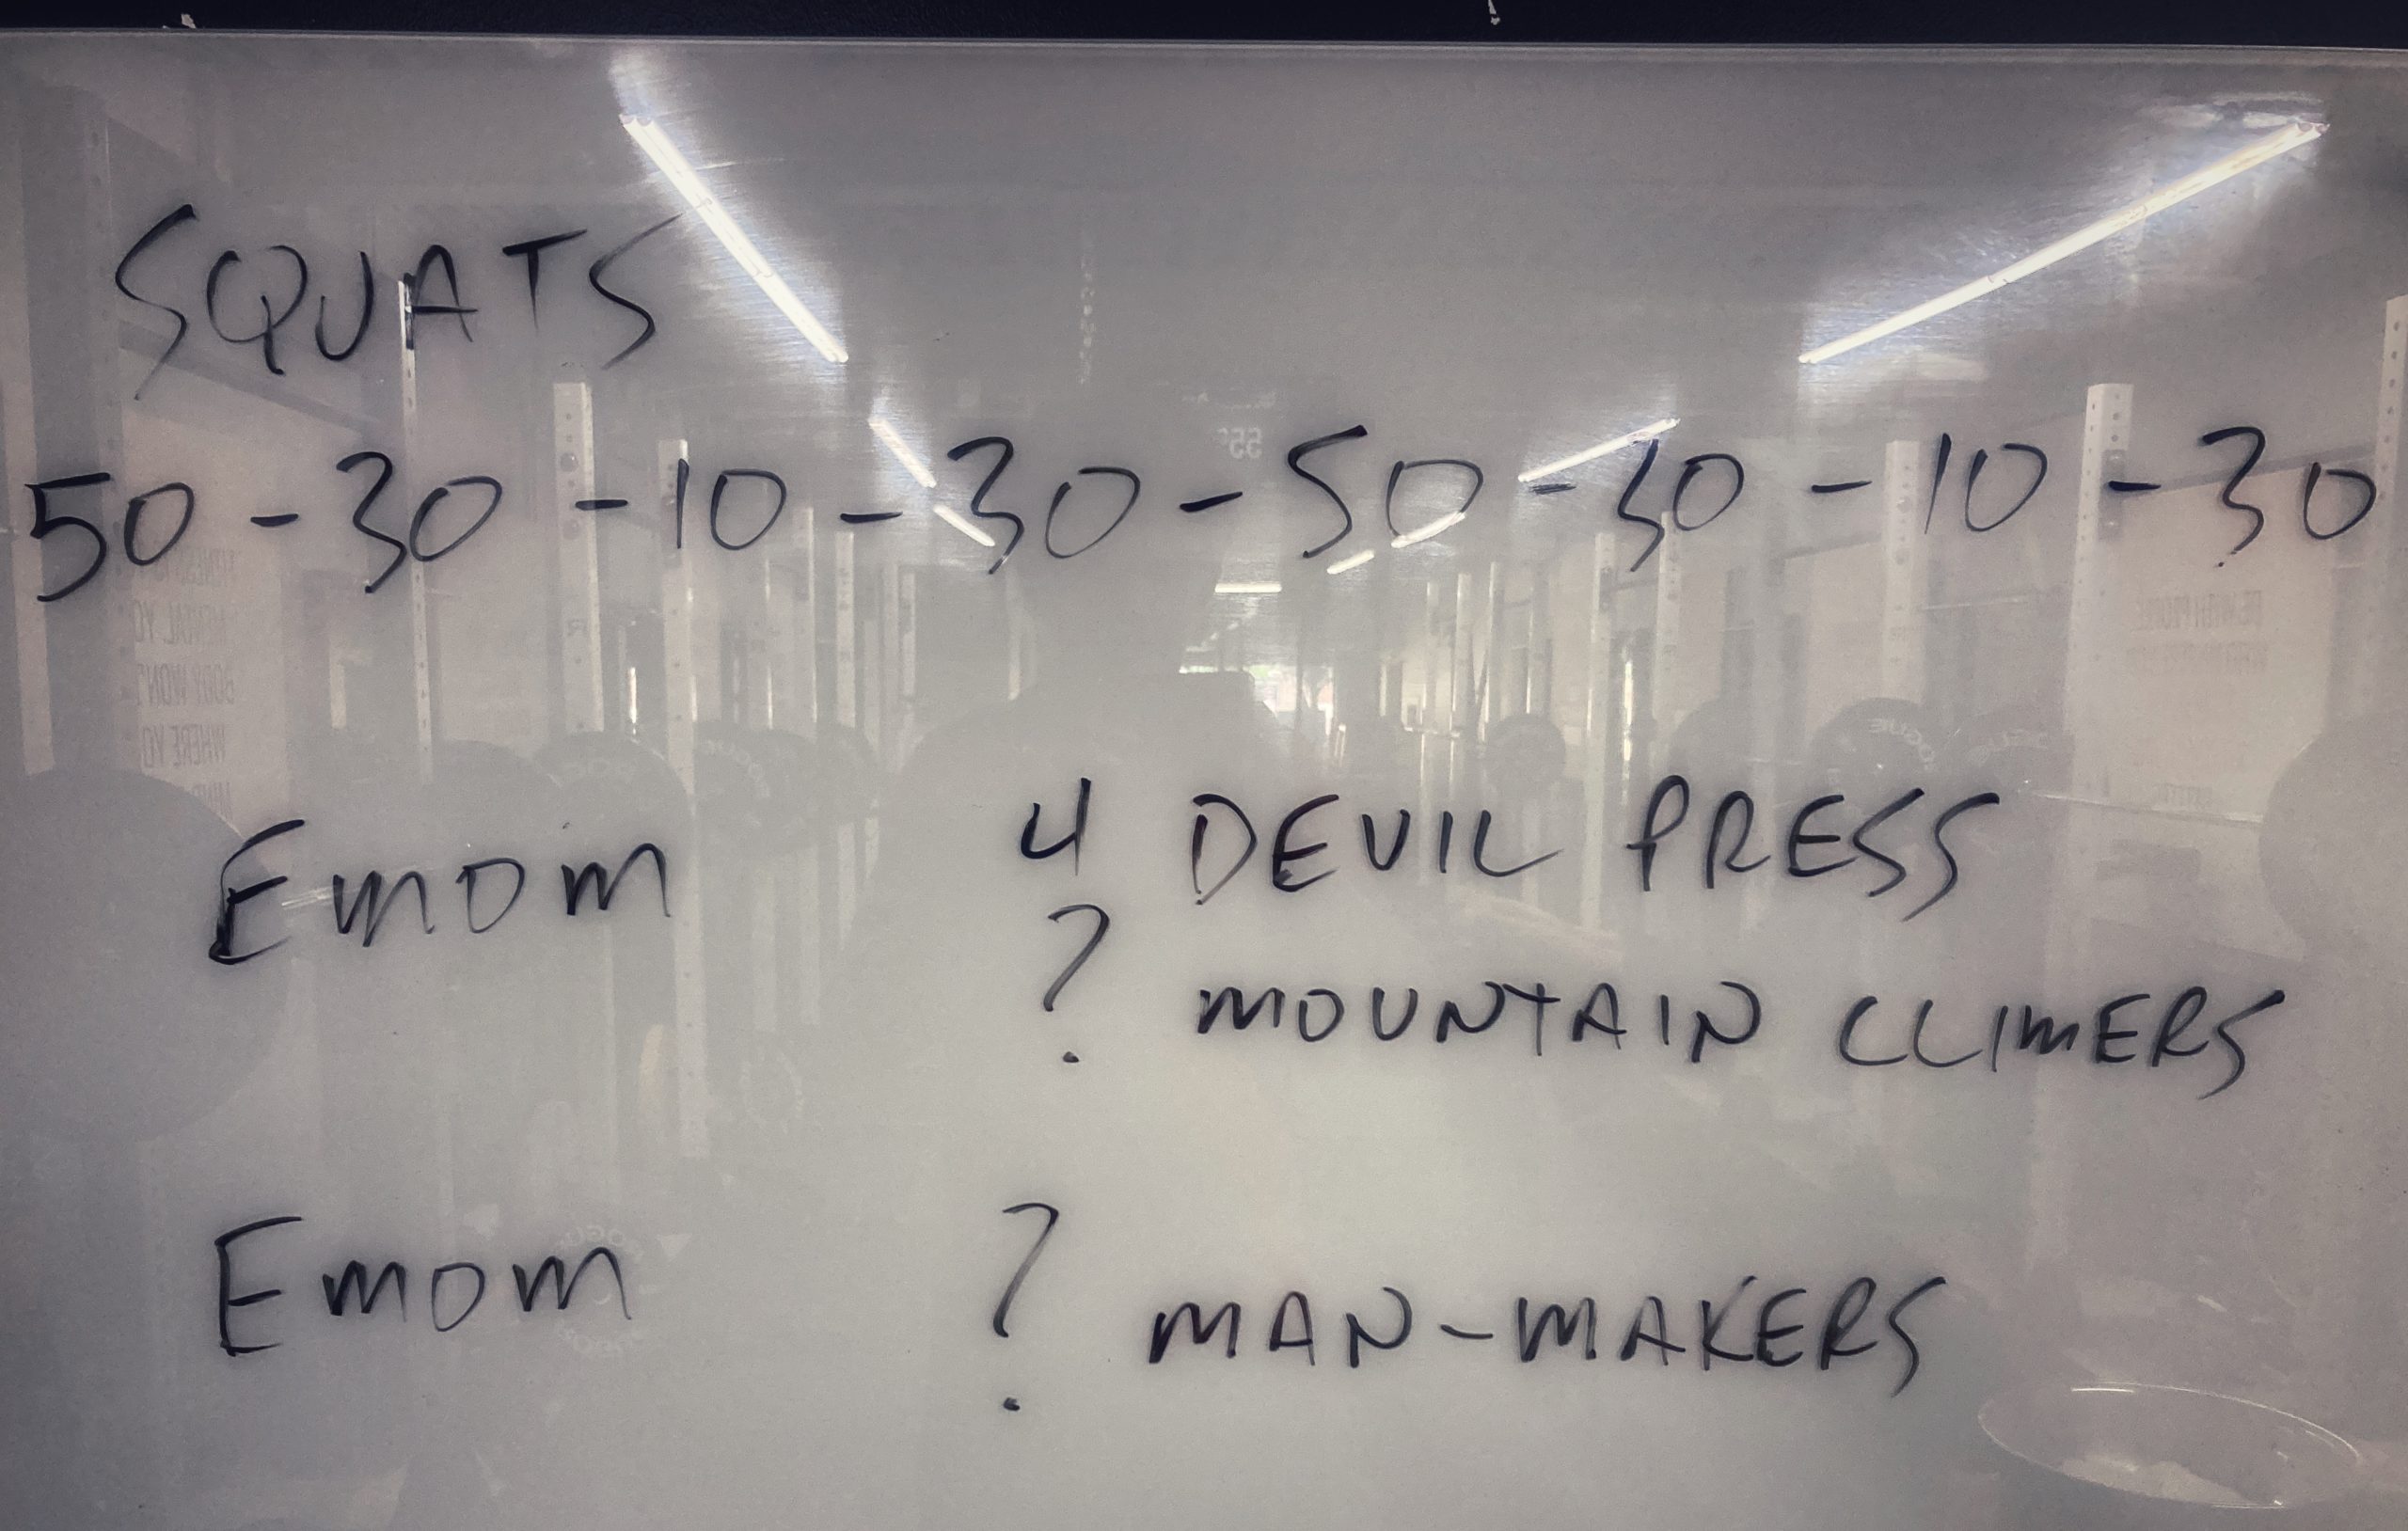 SQUATS
50 - 30 - 10 - 30 - 50 - 30 - 10 - 30
Emom 4 DEVIL PRESS
? MOUNTAIN CLIMERS
Emom ? MAN-MAKERS